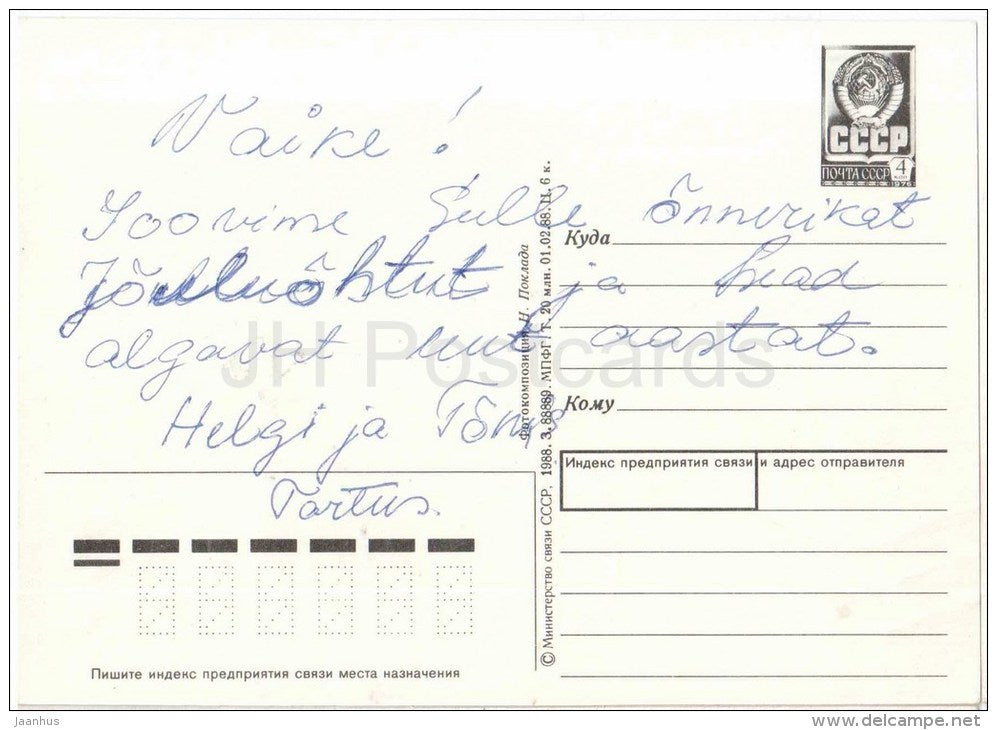 Vaike!
Soovime Sulle õnnerikat
Jõuluõhtut ja head
algavat uut aastat.
Helgi ja Tõnis
Tartus.
СССР
ПОЧТА СССР 4
1976
Куда
Кому
Индекс предприятия связи и адрес отправителя
Пишите индекс предприятия связи места назначения
Фотокомпозиция Н. Поклада
© Министерство связи СССР, 1988. З. 88889. МПФГ/Т. 20 млн. 01.02.88. Ц. 6 к.
JH Postcards
jaanhus
www.delcampe.net